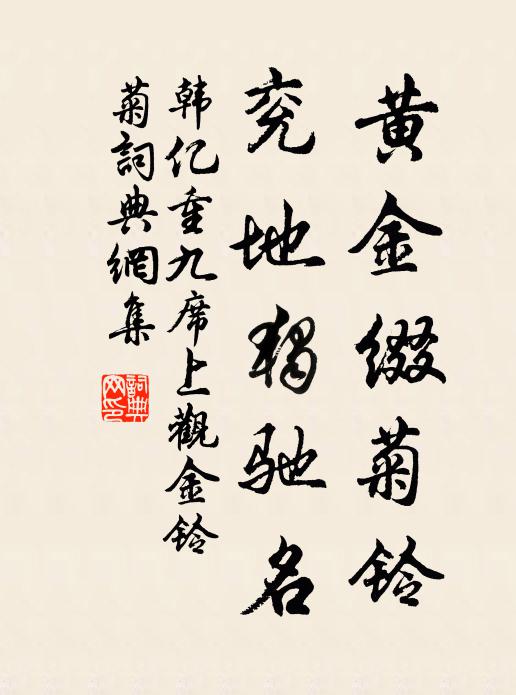 黄金缀菊铃
兖地独驰名
韩亿重九席上觀金铃
菊詞典網集
詞典网印